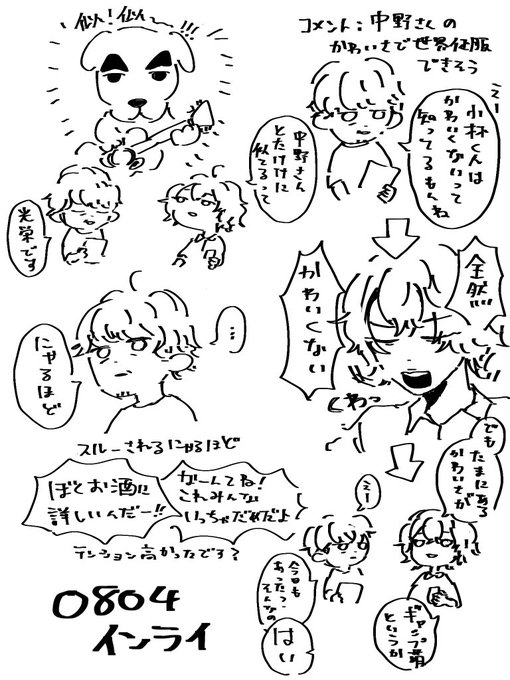 コメント:中野さんの
かわいさで世界征服
できそう
えー
小林くんは
かわいくないって
知ってるもんね
全然
かわいくない
くわっ
でも
たまにある
かわいさが
ギャップ萌
というか
えー
今日も
あったっ
そんなの
はい
似!似〜!!!
中野さん
とたけけに
似てるって
光栄です
…
にゃるほど
スルーされるにゃるほど
ぼくお酒に
詳しいんだー!!
かーんてね!
これみんな
いっちゃだめだよ
テンション高かったです?
0804
インライ